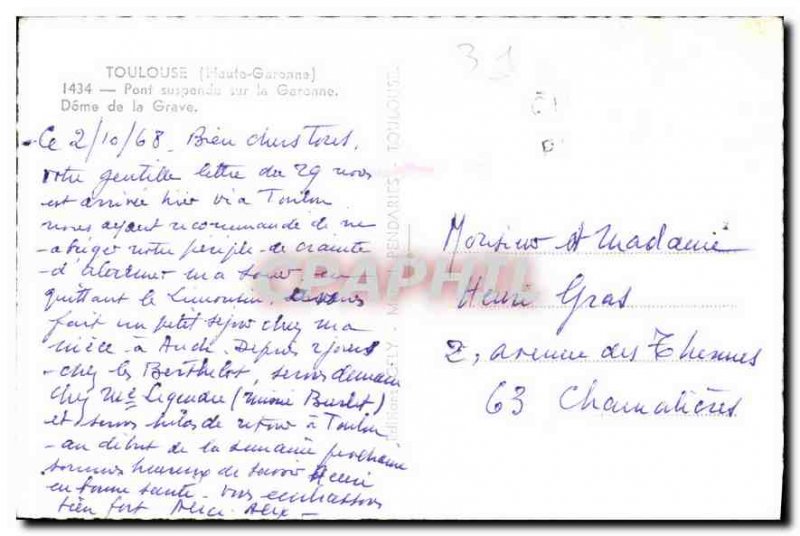 TOULOUSE (Haute-Garonne)
1434 — Pont suspendu sur la Garonne.
Dôme de la Grave.
31
Ce 2/10/68. Bien chers tous,
votre gentille lettre du 29 nous
est arrivée hier via Toulon
nous ayant recommandé de ne
abréger notre périple de crainte
d'alarmer ma soeur en
quittant le Limousin.
fait un petit séjour chez ma
nièce à Auch. Depuis 2 jours
chez les Berthelot, serons demain
chez Me Legendre
et serons de retour à Toulon
au début de la semaine prochaine
sommes heureux de savoir Henri
en bonne santé. vous embrassons
bien fort
Monsieur et Madame
Henri Gras
2, avenue des Thermes
63 Chamalières
TOULOUSE
CPAPHIL